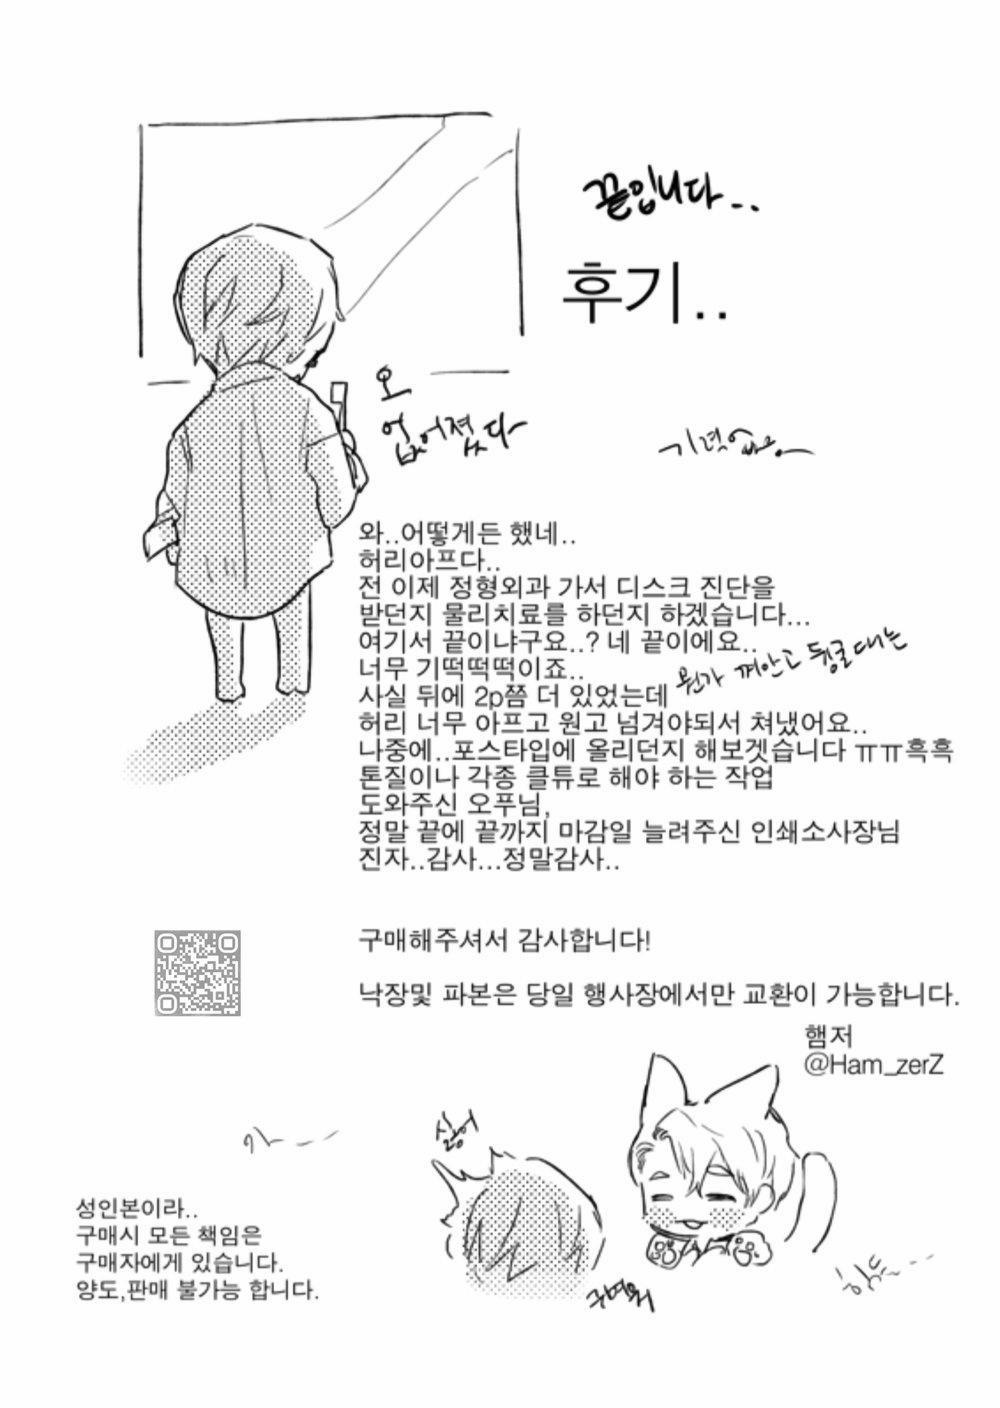 끝입니다...
후기..
오
없어졌다
기력없음
와..어떻게든 했네..
허리아프다..
전 이제 정형외과 가서 디스크 진단을
받던지 물리치료를 하던지 하겠습니다...
여기서 끝이냐구요..? 네 끝이에요..
너무 기떡떡떡이죠..
사실 뒤에 2p쯤 더 있었는데
뭔가 껴안고 뒹굴대는
허리 너무 아프고 원고 넘겨야되서 쳐냈어요..
나중에..포스타입에 올리던지 해보겟습니다 ㅠㅠ흑흑
톤질이나 각종 클튜로 해야 하는 작업
도와주신 오푸님,
정말 끝에 끝까지 마감일 늘려주신 인쇄소사장님
진자..감사...정말감사..
구매해주셔서 감사합니다!
낙장및 파본은 당일 행사장에서만 교환이 가능합니다.
햄저
@Ham_zerZ
싫어
성인본이라..
구매시 모든 책임은
구매자에게 있습니다.
양도,판매 불가능 합니다.
귀여워